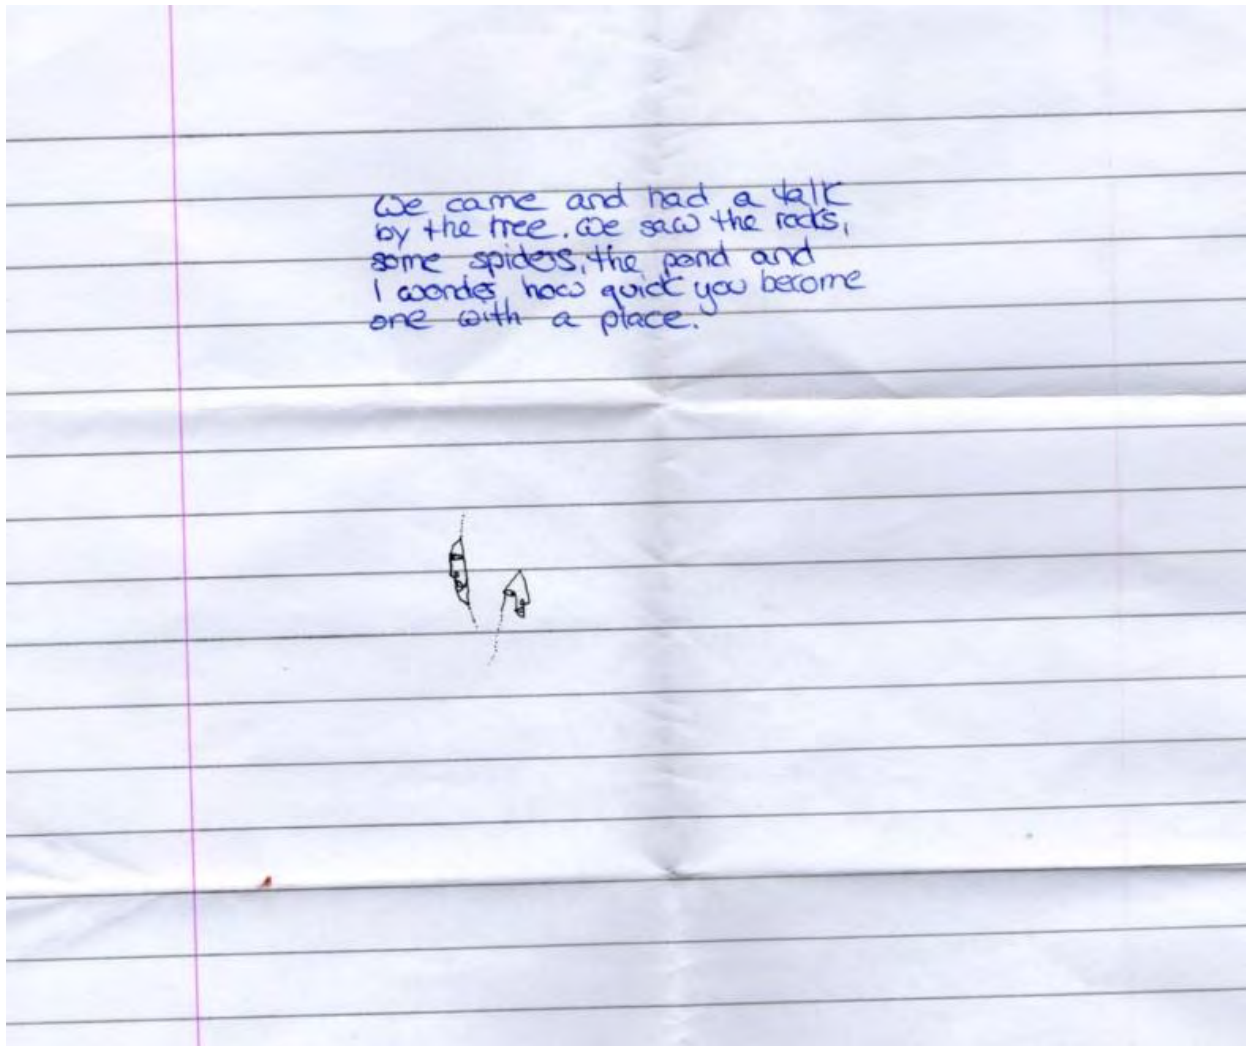 We came and had a talk
by the tree. We saw the rocks,
some spiders, the pond and
I wonder how quick you become
one with a place.